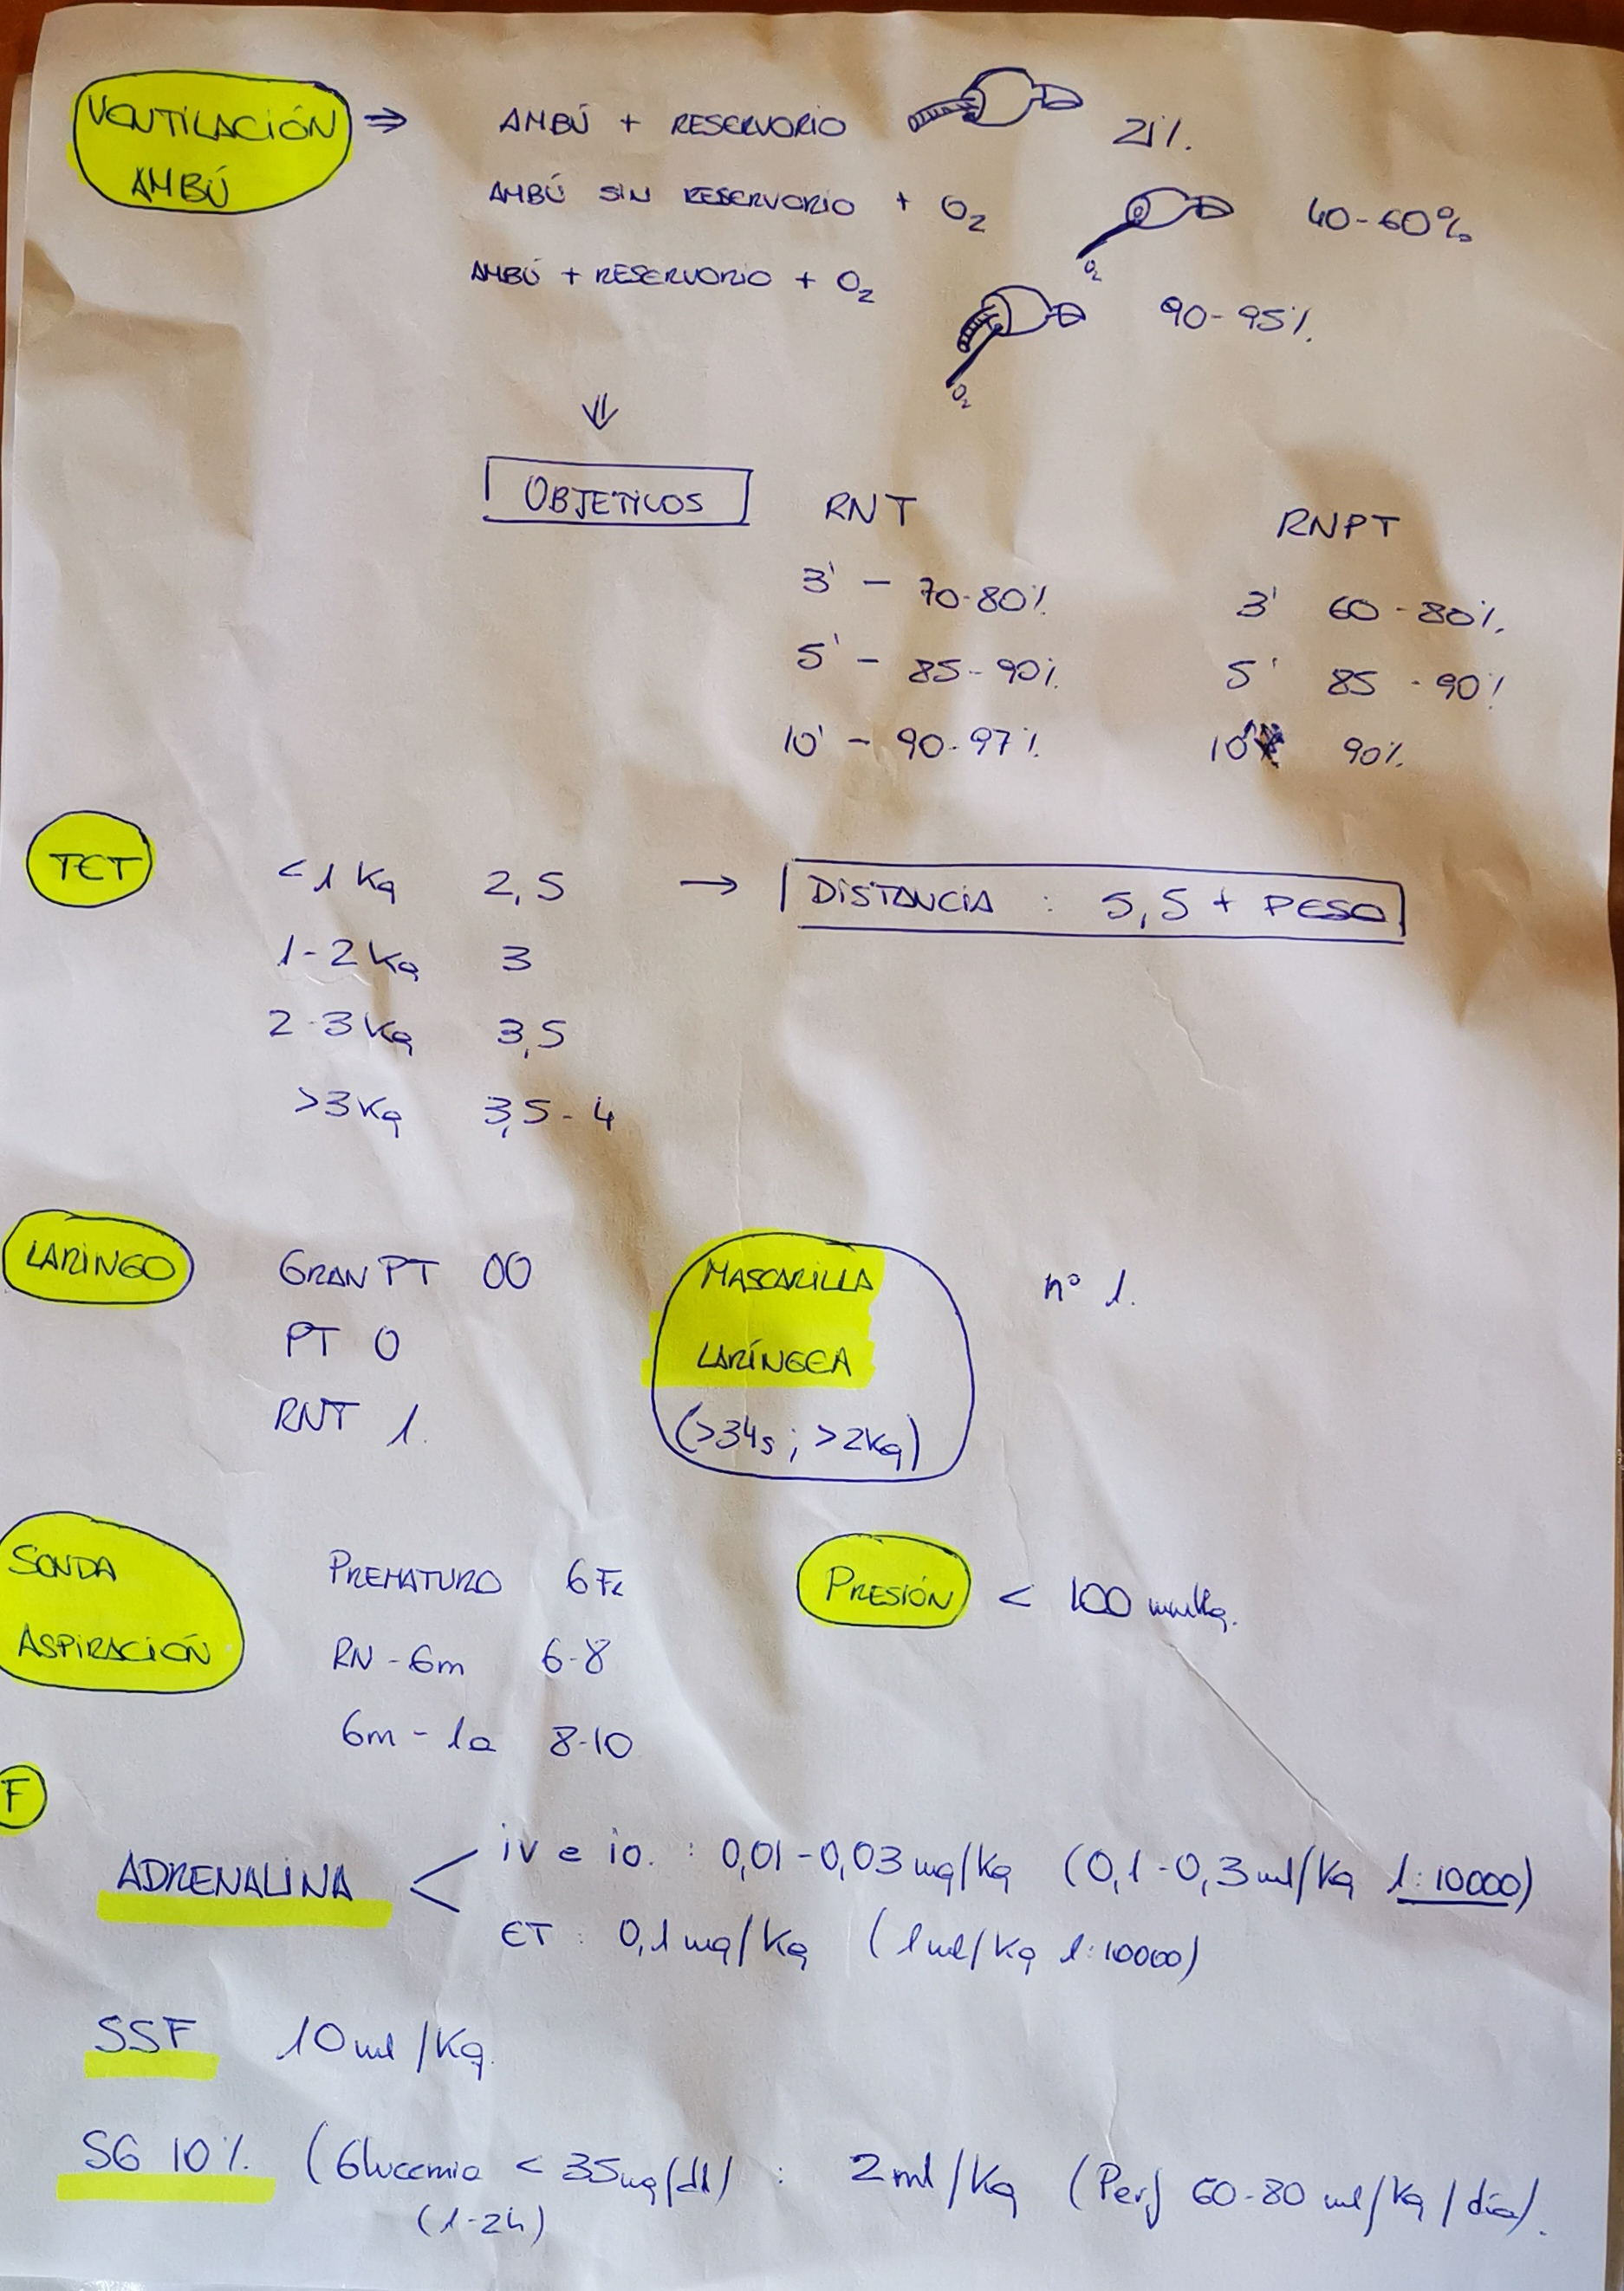 VENTILACIÓN AMBÚ ⇒ AMBÚ + RESERVORIO 21%.
AMBÚ SIN RESERVORIO + O2 O2 40-60%
AMBÚ + RESERVORIO + O2 O2 90-95%.
⇓
OBJETIVOS RNT RNPT
3' - 70-80%. 3' 60-80%.
5' - 85-90%. 5' 85-90%
10' - 90-97%. 10' 90%.
TET <1 Kg 2,5 → DISTANCIA : 5,5 + PESO
1-2 Kg 3
2-3 Kg 3,5
>3 Kg 3,5-4
LARINGO GRAN PT 00
PT 0
RNT 1.
MASCARILLA nº 1.
LARÍNGEA
(>34s ; >2Kg)
SONDA ASPIRACIÓN PREMATURO 6 Fr
RN - 6m 6-8
6m - 1a 8-10
PRESIÓN < 100 mmHg.
F
ADRENALINA < iv e io. : 0,01-0,03 mg/Kg (0,1-0,3 ml/Kg 1:10000)
ET : 0,1 mg/Kg (1ml/Kg 1:10000)
SSF 10 ml/Kg.
SG 10%. (Glucemia < 35mg/dl) : 2 ml/Kg (Perf 60-80 ml/Kg/día).
(1-2h)